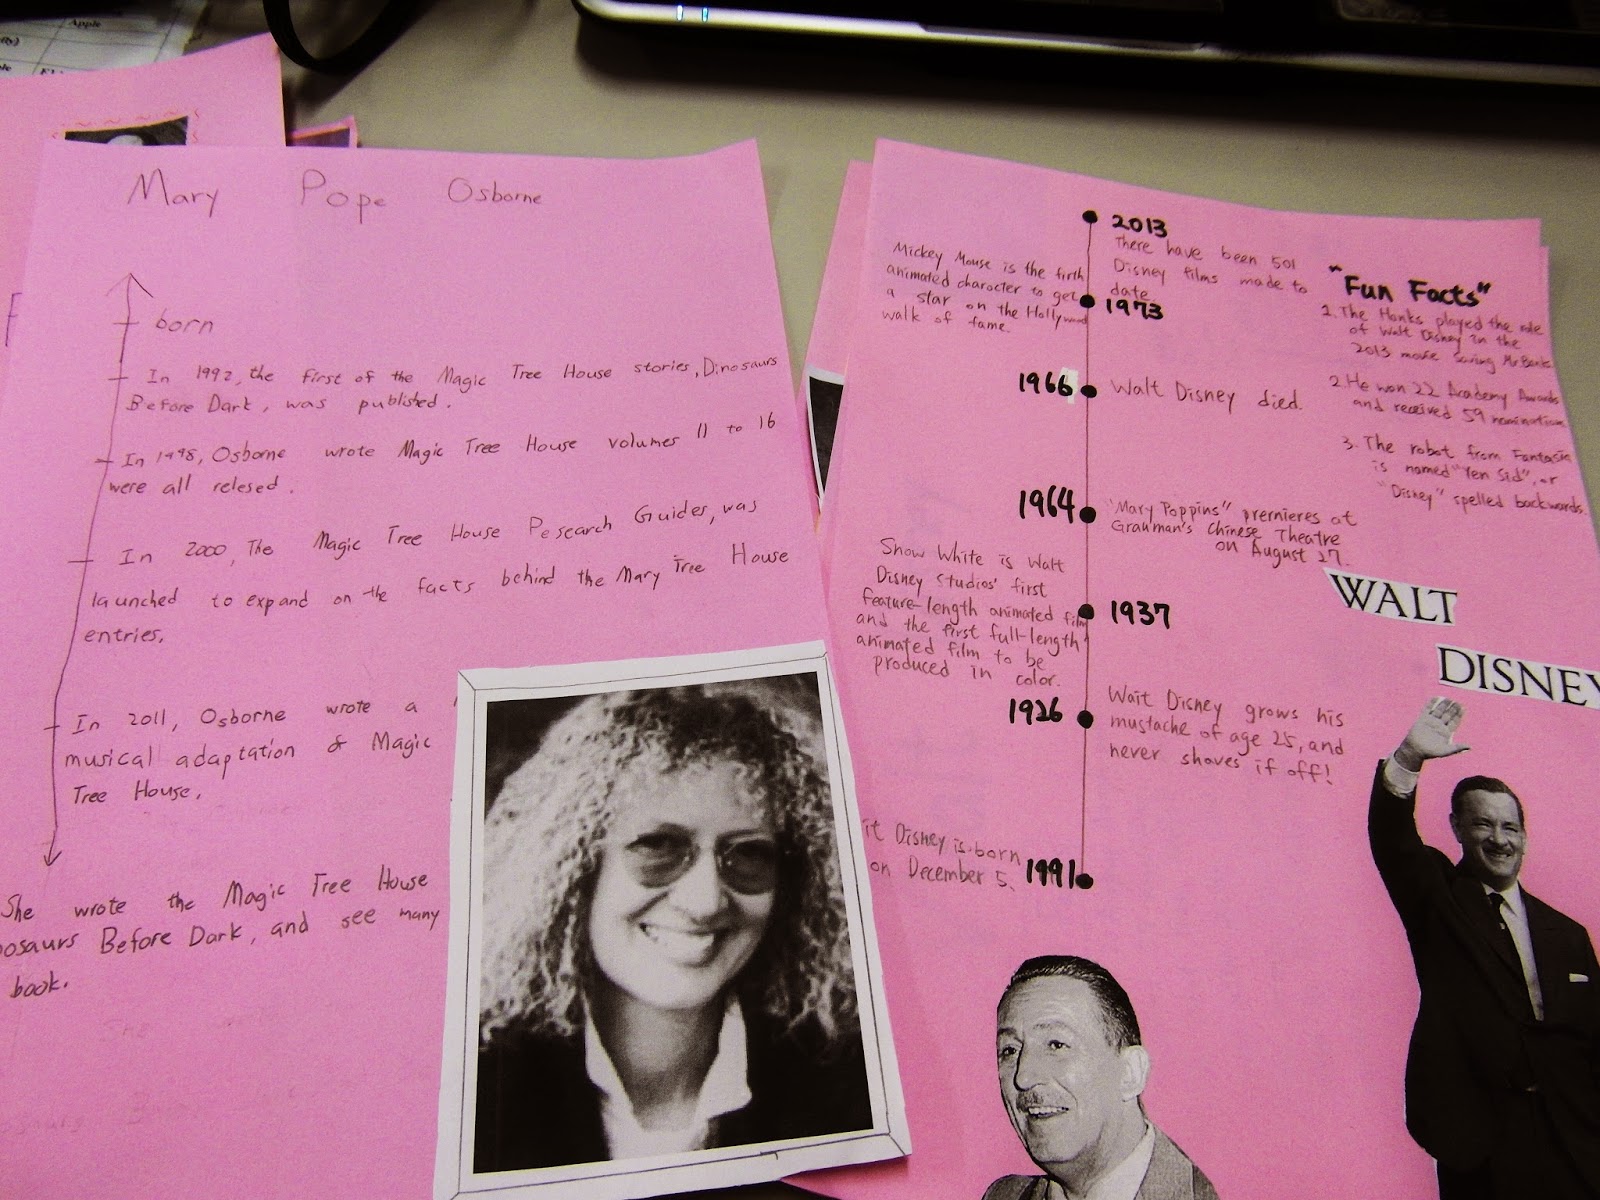 Apple
Mary Pope Osborne
born
In 1992, the first of the Magic Tree House stories, Dinosaurs
Before Dark, was published.
In 1998, Osborne wrote Magic Tree House volumes 11 to 16
were all relesed.
In 2000, The Magic Tree House Research Guides, was
launched to expand on the facts behind the Mary Tree House
entries.
In 2011, Osborne wrote a
musical adaptation of Magic
Tree House.
She wrote the Magic Tree House
osaurs Before Dark, and see many
book.
2013
There have been 501
Disney films made to
date.
Mickey Mouse is the firth
animated character to get
a star on the Hollywood
walk of fame.
1973
1966
Walt Disney died.
1964
"Mary Poppins" prernieres at
Grauman's Chinese Theatre
on August 27.
Snow White is Walt
Disney Studios' first
feature-length animated film
and the first full-length
animated film to be
produced in color.
1937
1926
Walt Disney grows his
mustache of age 25, and
never shaves if off!
it Disney is born
on December 5.
1991
"Fun Facts"
1. The Hanks played the role
of Walt Disney in the
2013 movie saving Mr Banks
2. He won 22 Academy Awards
and received 59 nominations
3. The robot from Fantasia
is named "Yen Sid", or
"Disney" spelled backwards.
WALT
DISNEY